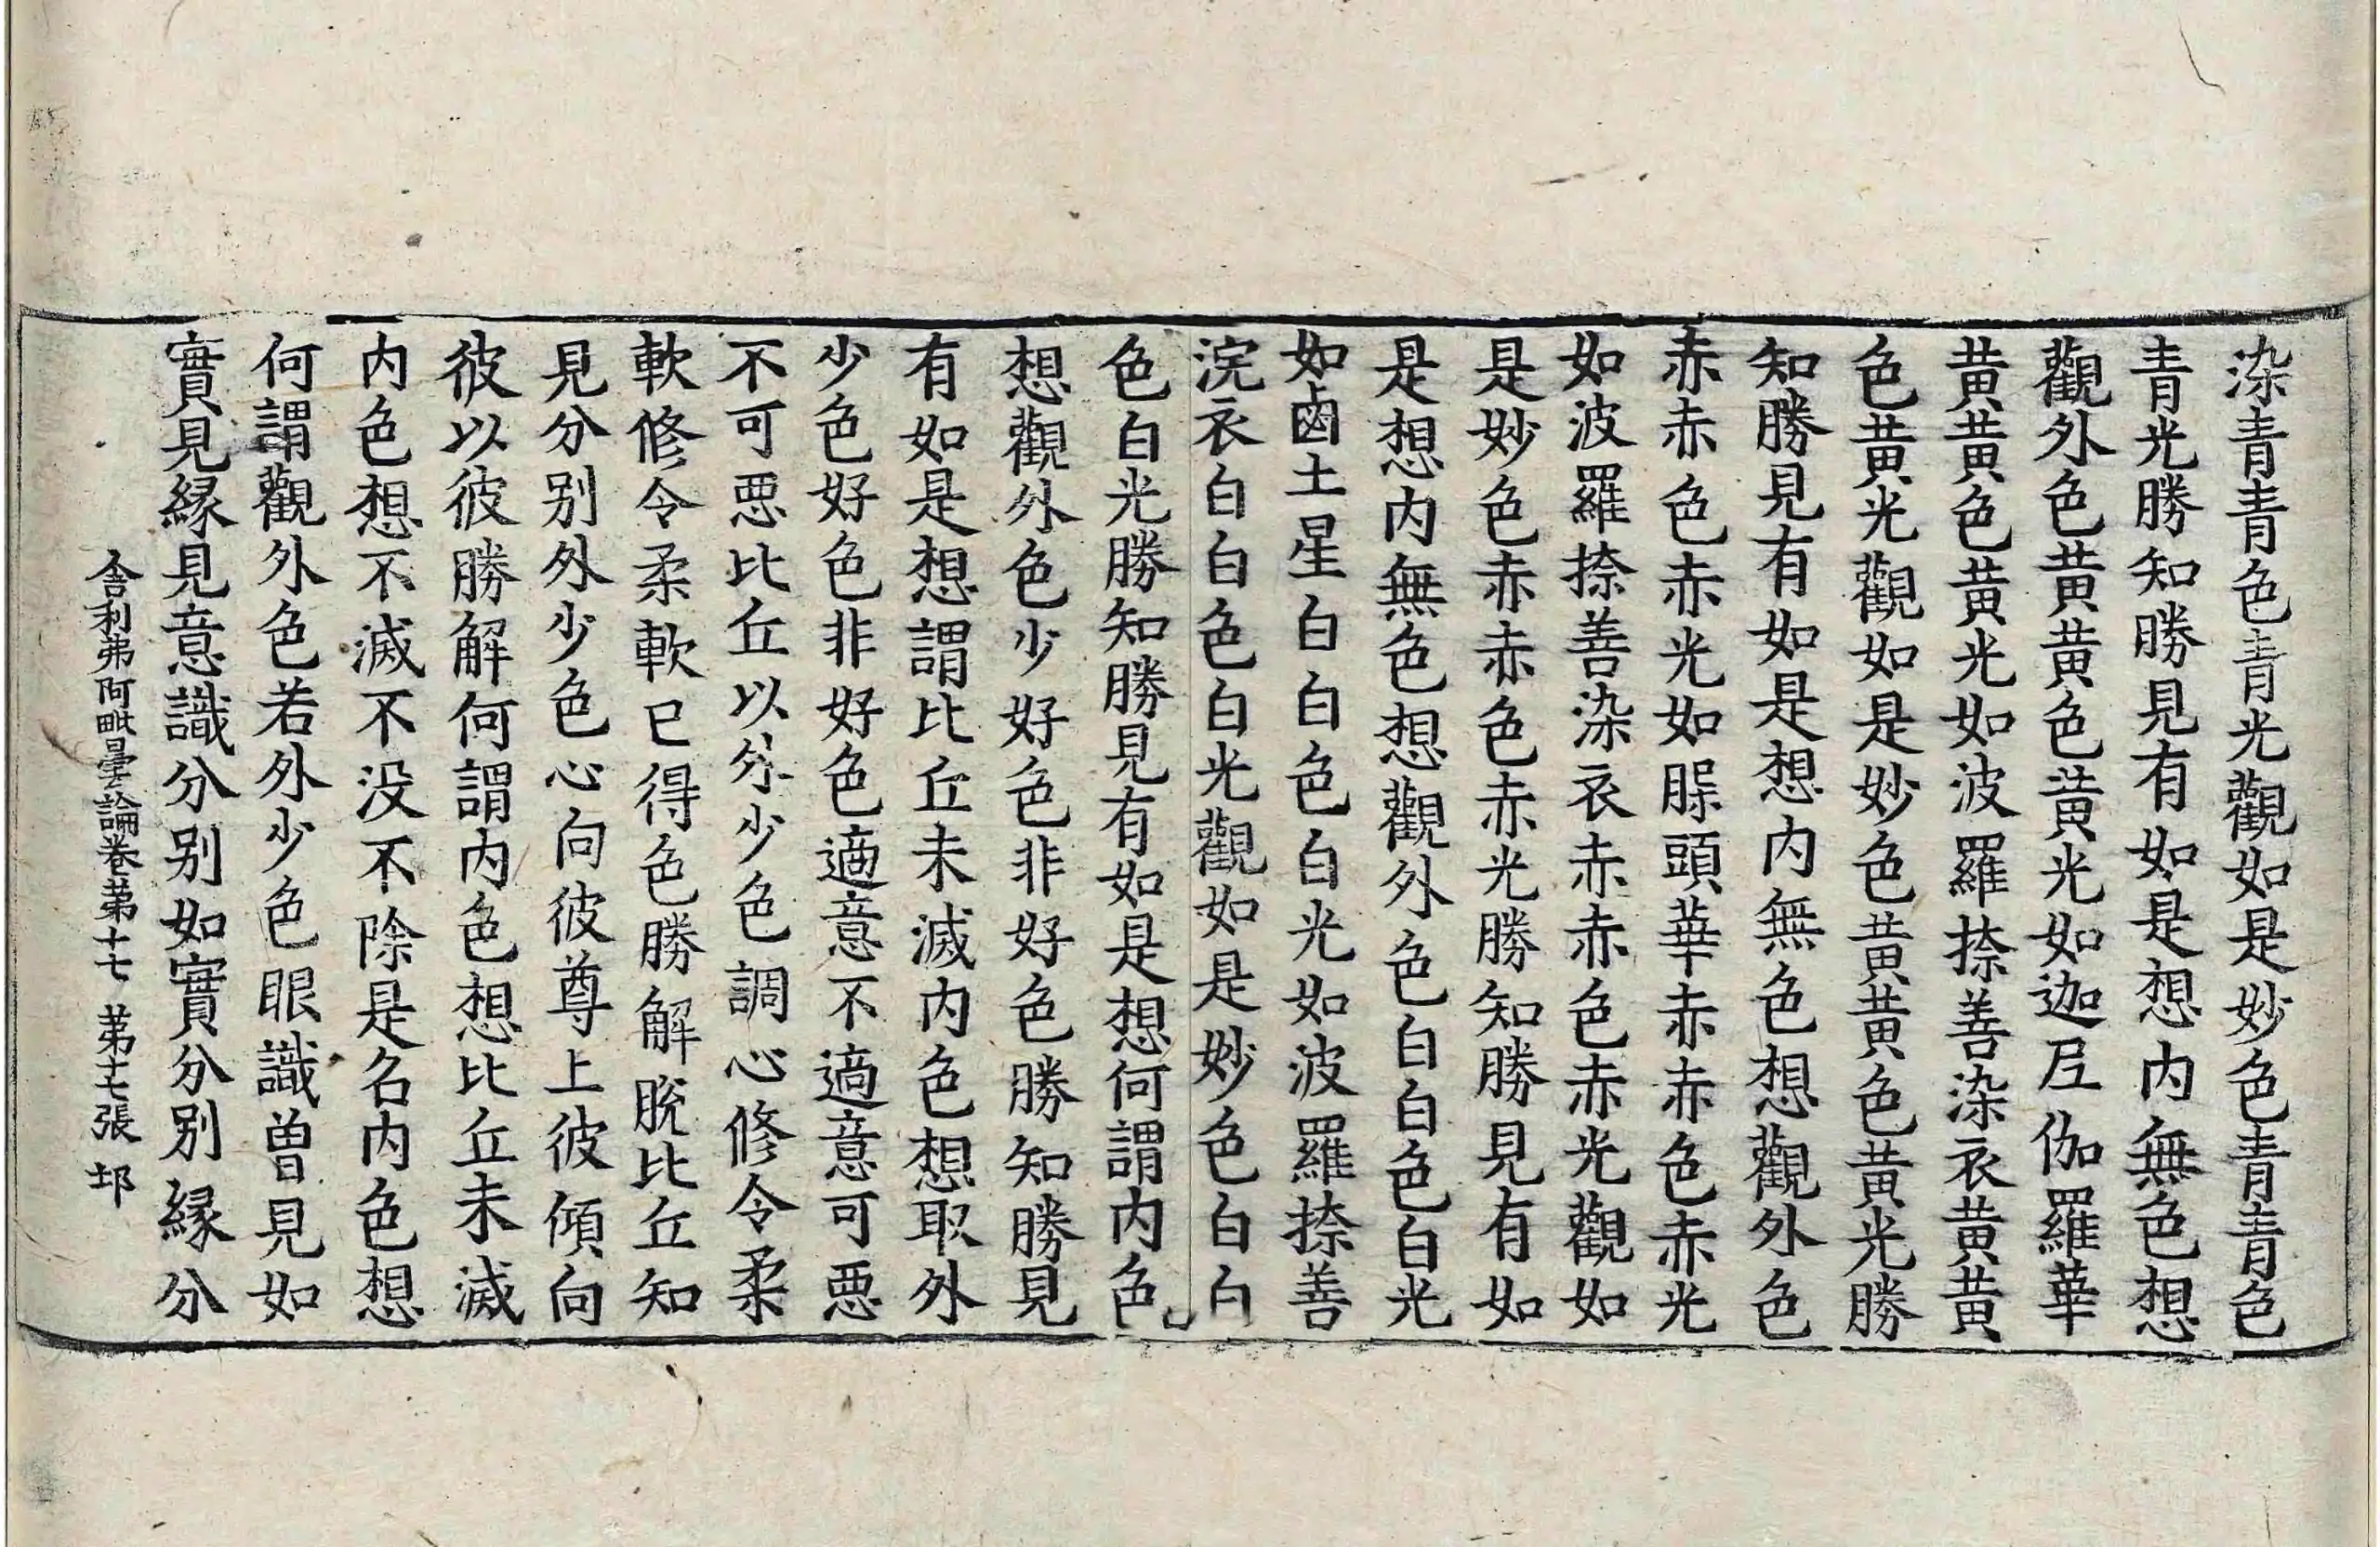 染青青色青光觀如是妙色青青色
青光勝知勝見有如是想內無色想
觀外色黃黃色黃光如迦尼伽羅華
黃黃色黃光如波羅捺善染衣黃黃
色黃光觀如是妙色黃黃色黃光勝
知勝見有如是想內無色想觀外色
赤赤色赤光如䐗頭華赤赤色赤光
如波羅捺善染衣赤赤色赤光觀如
是妙色赤赤色赤光勝知勝見有如
是想內無色想觀外色白白色白光
如鹵土星白白色白光如波羅捺善
浣衣白白色白光觀如是妙色白白
色白光勝知勝見有如是想何謂內色
想觀外色少好色非好色勝知勝見
有如是想謂比丘未滅內色想取外
少色好色非好色適意不適意可惡
不可惡比丘以外少色調心修令柔
軟修令柔軟已得色勝解脫比丘知
見分別外少色心向彼尊上彼傾向
彼以彼勝解何謂內色想比丘未滅
內色想不滅不沒不除是名內色想
何謂觀外色若外少色眼識曾見如
實見緣見意識分別如實分別緣分
舍利弗阿毗曇論卷第十七 第十七張 邞